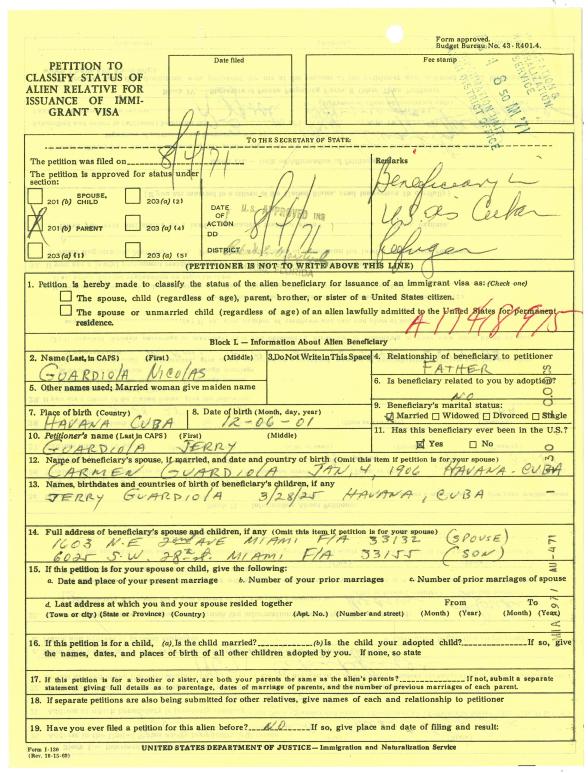 Form approved.
Budget Bureau. No. 43-R401.4.
PETITION TO
CLASSIFY STATUS OF
ALIEN RELATIVE FOR
ISSUANCE OF IMMI-
GRANT VISA
Date filed
Fee stamp
8 50 AM '71
TO THE SECRETARY OF STATE:
The petition was filed on 8/4/71
The petition is approved for status under
section:
201 (b) SPOUSE, CHILD
203 (a) (2)
201 (b) PARENT
203 (a) (4)
203 (a) (1)
203 (a) (5)
DATE
OF
ACTION
DD
DISTRICT
U.S. APPROVED INS
8/4/71
Remarks
Beneficiary in
US as Cuban
Refugee
(PETITIONER IS NOT TO WRITE ABOVE THIS LINE)
1. Petition is hereby made to classify the status of the alien beneficiary for issuance of an immigrant visa as: (Check one)
The spouse, child (regardless of age), parent, brother, or sister of a United States citizen.
The spouse or unmarried child (regardless of age) of an alien lawfully admitted to the United States for permanent
residence.
Block I. - Information About Alien Beneficiary
2. Name (Last, in CAPS) (First) (Middle)
GUARDIOLA NICOLAS
3. Do Not Write in This Space
4. Relationship of beneficiary to petitioner
FATHER
5. Other names used; Married woman give maiden name
6. Is beneficiary related to you by adoption?
NO
7. Place of birth (Country)
HAVANA CUBA
8. Date of birth (Month, day, year)
12-06-01
9. Beneficiary's marital status:
Married Widowed Divorced Single
10. Petitioner's name (Last in CAPS) (First) (Middle)
GUARDIOLA JERRY
11. Has this beneficiary ever been in the U.S.?
Yes No
12. Name of beneficiary's spouse, if married, and date and country of birth (Omit this item if petition is for your spouse)
CARMEN GUARDIOLA JAN. 4, 1906 HAVANA-CUBA
13. Names, birthdates and countries of birth of beneficiary's children, if any
JERRY GUARDIOLA 3/28/25 HAVANA, CUBA
14. Full address of beneficiary's spouse and children, if any (Omit this item if petition is for your spouse)
1603 N.E 2nd AVE MIAMI FLA 33132 (SPOUSE)
6025 S.W. 28th st. MIAMI FLA 33155 (SON)
15. If this petition is for your spouse or child, give the following:
a. Date and place of your present marriage b. Number of your prior marriages c. Number of prior marriages of spouse
d. Last address at which you and your spouse resided together From To
(Town or city) (State or Province) (Country) (Apt. No.) (Number and street) (Month) (Year) (Month) (Year)
16. If this petition is for a child, (a) Is the child married? (b) Is the child your adopted child? If so, give
the names, dates, and places of birth of all other children adopted by you. If none, so state
17. If this petition is for a brother or sister, are both your parents the same as the alien's parents? If not, submit a separate
statement giving full details as to parentage, dates of marriage of parents, and the number of previous marriages of each parent.
18. If separate petitions are also being submitted for other relatives, give names of each and relationship to petitioner
19. Have you ever filed a petition for this alien before? NO If so, give place and date of filing and result:
UNITED STATES DEPARTMENT OF JUSTICE - Immigration and Naturalization Service
Form I-130